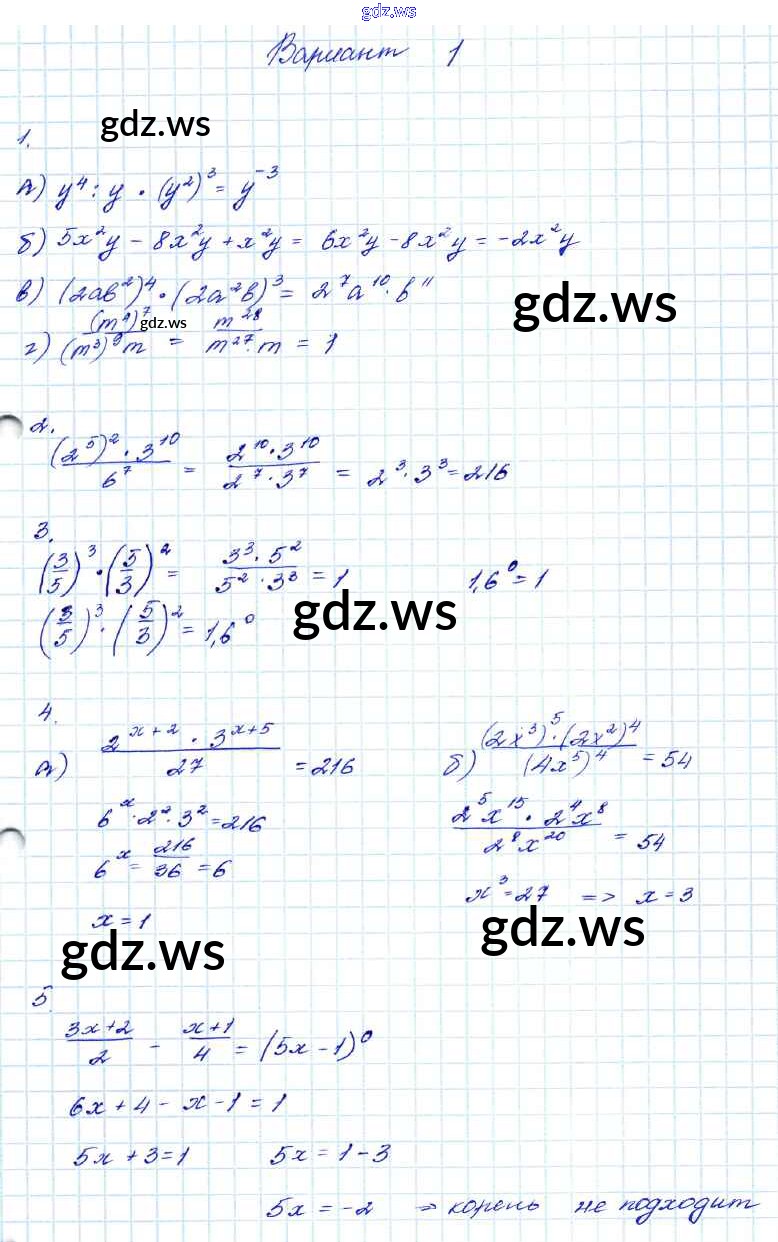 gdz.ws
Вариант 1
gdz.ws
1.
а) y⁴ : y · (y²)³ = y⁻³
б) 5x²y − 8x²y + x²y = 6x²y − 8x²y = −2x²y
в) (2ab²)⁴ · (2a²b)³ = 2⁷a¹⁰ · b¹¹
gdz.ws
г) (m⁴)⁷ / (m³)⁹m = m²⁸ / m²⁷ · m = 1
gdz.ws
2.
(2⁵)² · 3¹⁰ / 6⁷ = 2¹⁰ · 3¹⁰ / 2⁷ · 3⁷ = 2³ · 3³ = 216
3.
(3/5)³ · (5/3)² = 3³ · 5² / 5² · 3³ = 1 1,6⁰ = 1
(3/5)³ · (5/3)² = 1,6⁰
gdz.ws
4.
а) 2ˣ⁺² · 3ˣ⁺⁵ / 27 = 216
6ˣ · 2² · 3² = 216
6ˣ = 216/36 = 6
x = 1
gdz.ws
б) (2x³)⁵ · (2x²)⁴ / (4x⁵)⁴ = 54
2⁵x¹⁵ · 2⁴x⁸ / 2⁸x²⁰ = 54
x³ = 27 => x = 3
gdz.ws
5.
3x+2 / 2 − x+1 / 4 = (5x − 1)⁰
6x + 4 − x − 1 = 1
5x + 3 = 1 5x = 1 − 3
5x = −2 → корень не подходит